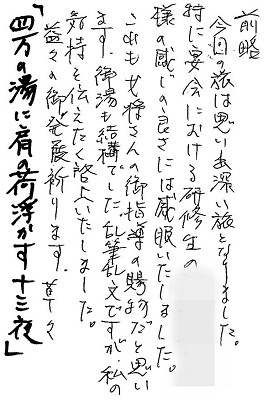 前略
今回の旅は思い出深い旅となりました。
特に宴会における研修生の
様の感じの良さには感服いたしました。
これも女将さんの御指導の賜物だと思い
ます。御湯も結構でした。乱筆乱文ですが、私の
気持を伝えたく啓上いたしました。
益々の御発展祈ります。草々
「四万の湯に肩の荷浮かす十三夜」